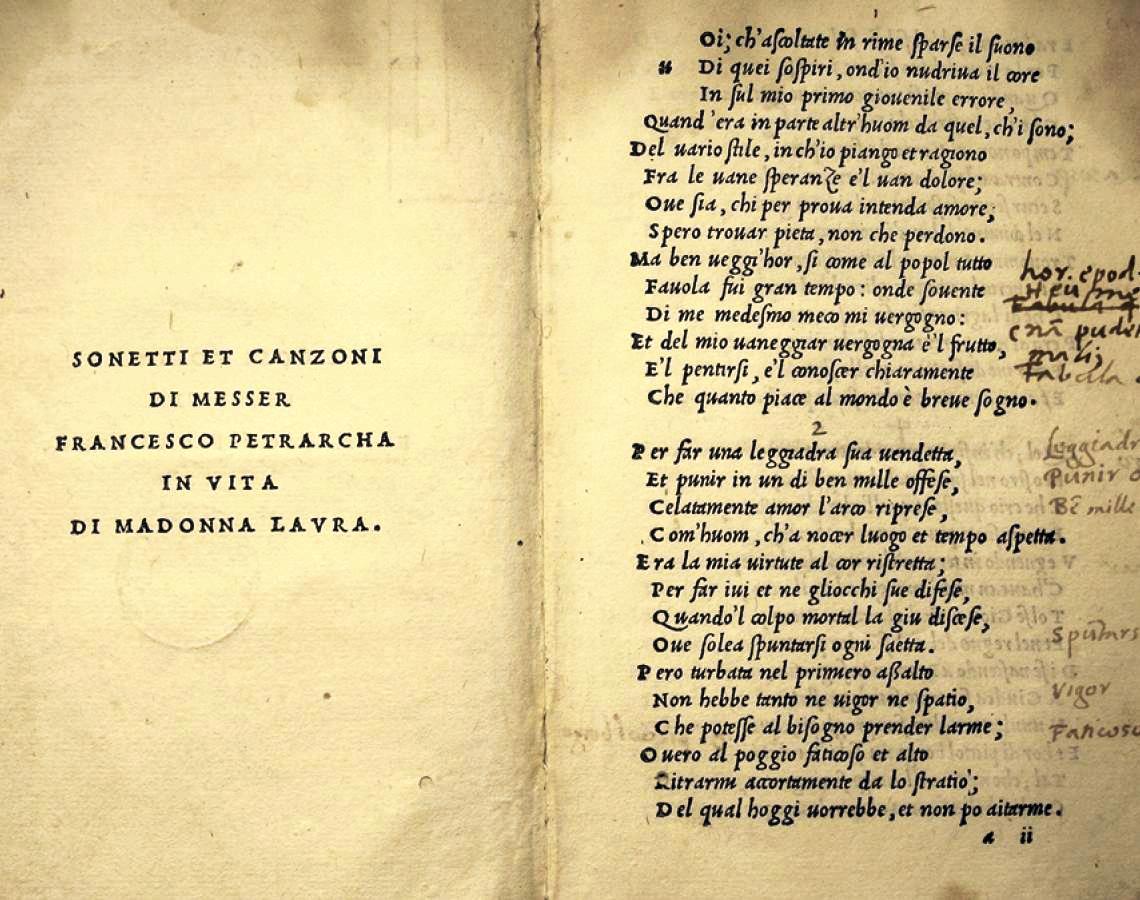 SONETTI ET CANZONI
DI MESSER
FRANCESCO PETRARCHA
IN VITA
DI MADONNA LAVRA.
Oi; ch'aſcoltate in rime ſparſe il ſuono
u Di quei ſoſpiri, ond'io nudriua il core
In ſul mio primo giouenile errore,
Quand'era in parte altr'huom da quel, ch'i ſono;
Del uario ſtile, in ch'io piango et ragiono
Fra le uane ſperanze e'l uan dolore;
Oue ſia, chi per proua intenda amore;
Spero trouar pieta, non che perdono.
Ma ben ueggi'hor, ſi come al popol tutto
Fauola fui gran tempo: onde ſouente
Di me medeſmo meco mi uergogno:
Et del mio uaneggiar uergogna è'l frutto,
E'l pentirſi, e'l conoſcer chiaramente
Che quanto piace al mondo è breue ſogno.
hor. epod.
Heu me
Fabula q
pude
mali,
Fabula
2
Per far una leggiadra ſua uendetta,
Et punir in un di ben mille offeſe,
Celatamente amor l'arco ripreſe,
Com'huom, ch'a nocer luogo et tempo aſpetta.
Era la mia uirtute al cor riſtretta;
Per far iui et ne gliocchi ſue difeſe,
Quando'l colpo mortal la giu diſceſe,
Oue ſolea ſpuntarſi ogni ſaetta.
Pero turbata nel primiero aßalto
Non hebbe tanto ne uigor ne ſpatio,
Che poteſſe al biſogno prender larme;
Ouero al poggio faticoſo et alto
Ritrarmi accortamente da lo ſtratio;
Del qual hoggi uorrebbe, et non po aitarme.
Leggiadr
Punir
Bē mille
Vigor
Faticoso
a ii